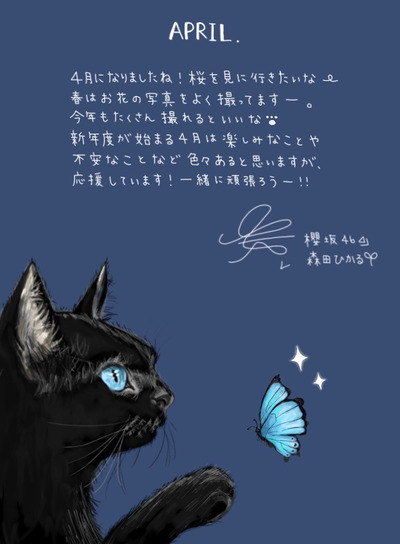 APRIL.
4月になりましたね！桜を見に行きたいな〜
春はお花の写真をよく撮ってますー。
今年もたくさん撮れるといいな
新年度が始まる4月は楽しみなことや
不安なことなど色々あると思いますが、
応援しています！一緒に頑張ろうー!!
櫻坂46
森田ひかる